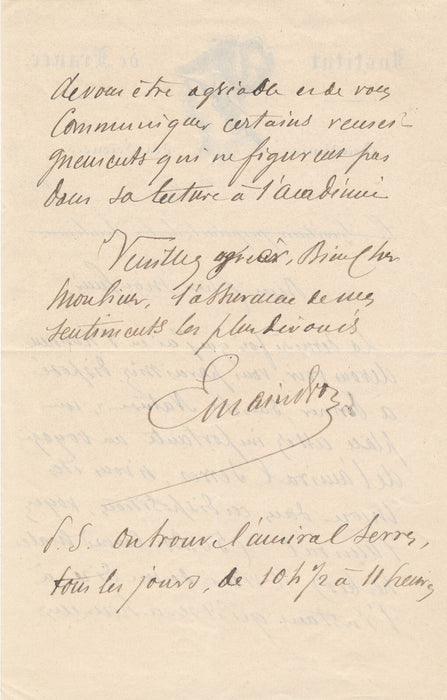 de vous être agréable et de vous
communiquer certains rensei-
gnements qui ne figurent pas
dans sa lecture à l'académie
Veuillez agréer, Bien Cher
Monsieur, l'assurance de mes
sentiments les plus dévoués
E Maindron
P.S. on trouve l'amiral Serres,
tous les jours, de 10h 1/2 à 11 heures